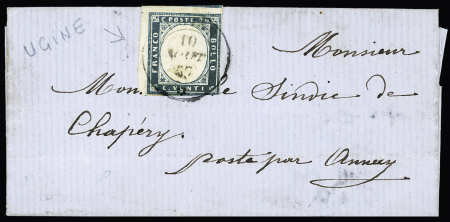 UGINE
C. POSTE 20
FRANCO
BOLLO
C. VENTI
10
AOUT
57
Monsieur
Mon le Sindic de
Chapéry.
poste par Annecy